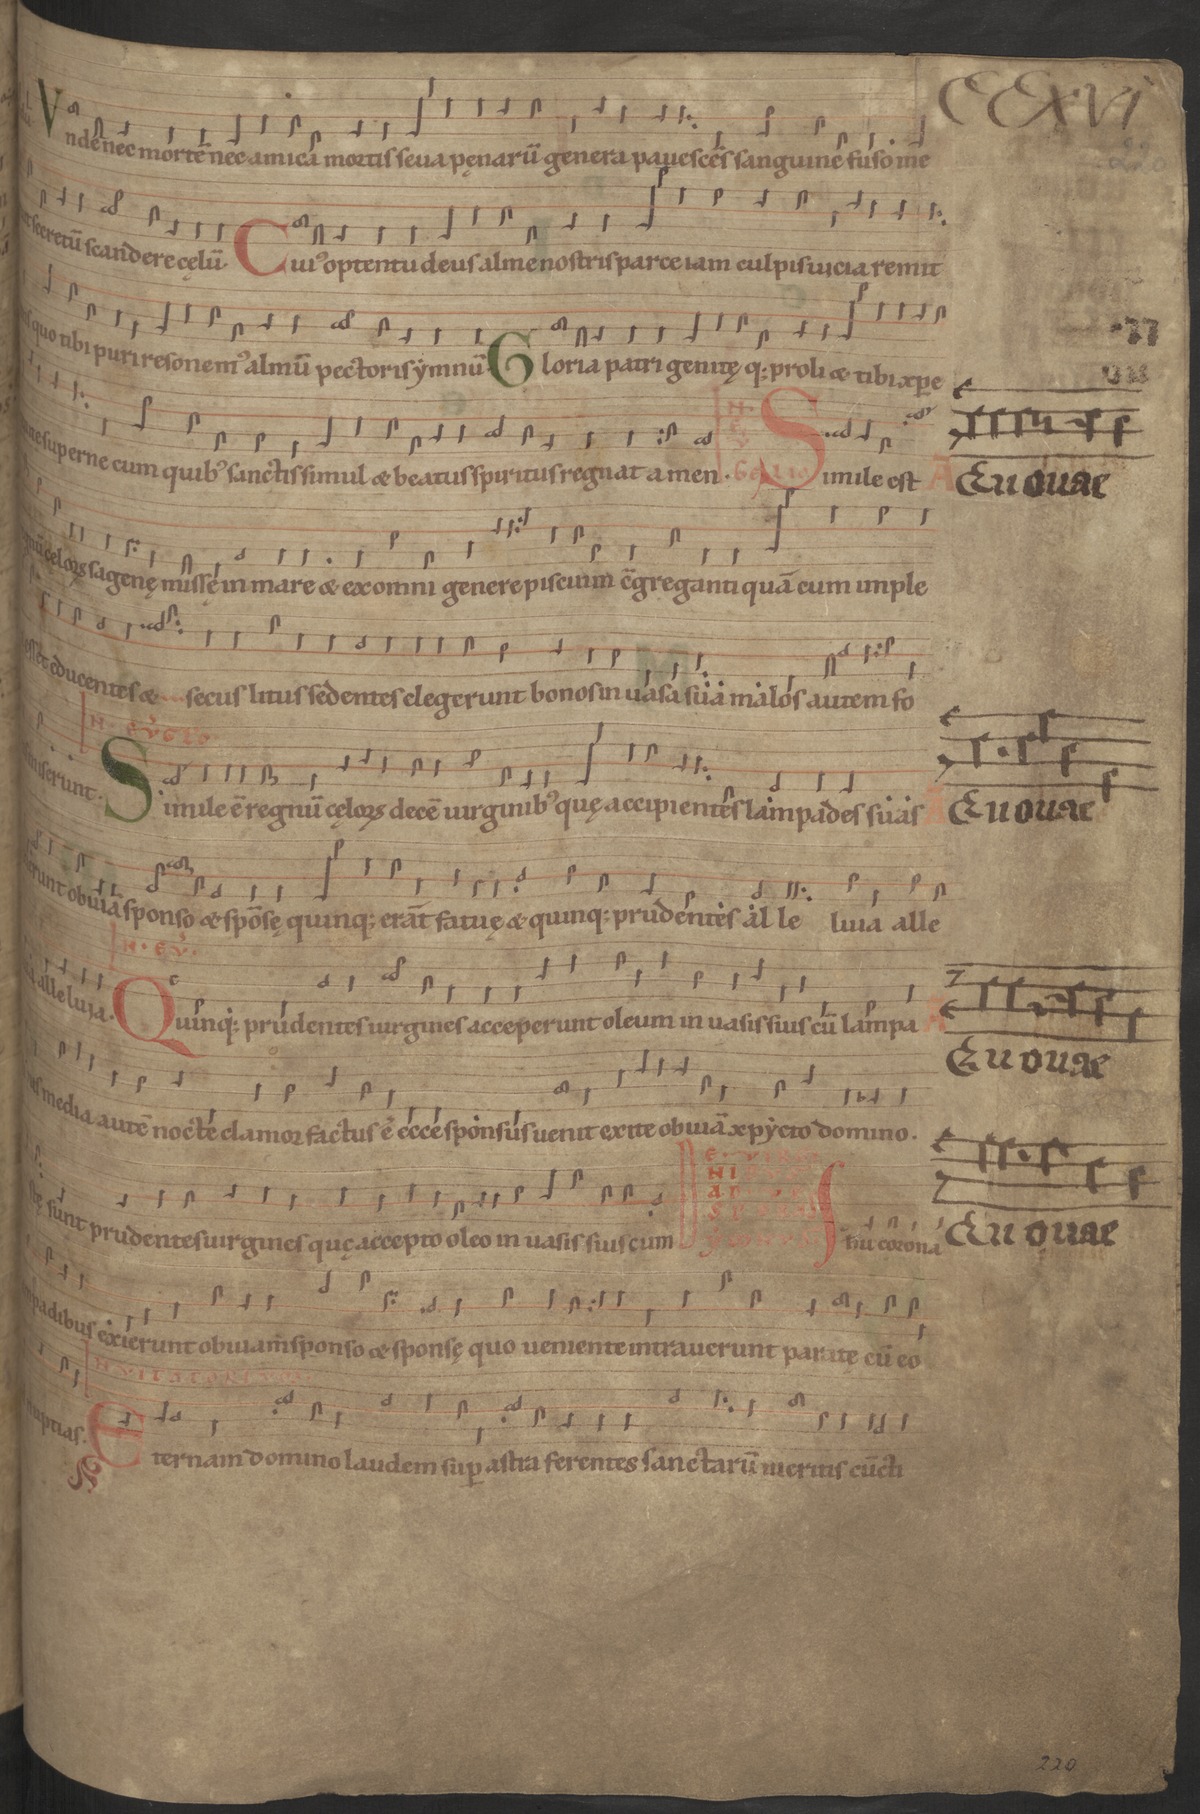 CCXVI
220
Vnde nec mortē nec amica mortis seua pęnarū genera pauescēs sanguine fuso me
secretū scandere cęlū. Cui᾽ optentu deus alme nostris parce iam culpis uicia remit
quo tibi puri resonem᾽ almū pectoris ẏmnū. Gloria patri genitę q; proli & tibi xp̄e
superne cum quib᾽ sanctis simul & beatus spiritus regnat amen. Simile est
Euouae
cęloꝝ sagenę missę in mare & ex omni genere piscium c̄greganti quā cum imple
educentes & secus litus sedentes elegerunt bonos in uasa sua malos autem fo
miserunt. Simile ē regnū cęloꝝ decē uirginib᾽ quę accipientes lampades suas
Euouae
obuiā sponso & spōsę quinq; erāt fatuę & quinq; prudentes al le luia alle
alleluia. Quinq; prudentes uirgines acceperunt oleum in uasis suis cū lampa
Euouae
media autē nocte clamor factus ē ecce sponsus uenit exite obuiā xpẏcto domino.
sunt prudentes uirgines quę accepto oleo in uasis suis cum
hu corona
Euouae
padibus exierunt obuiam sponso & sponsę quo ueniente intrauerunt paratę cū eo
nuptias. Eternam domino laudem sup astra ferentes sanctarū meritis cūcti
220